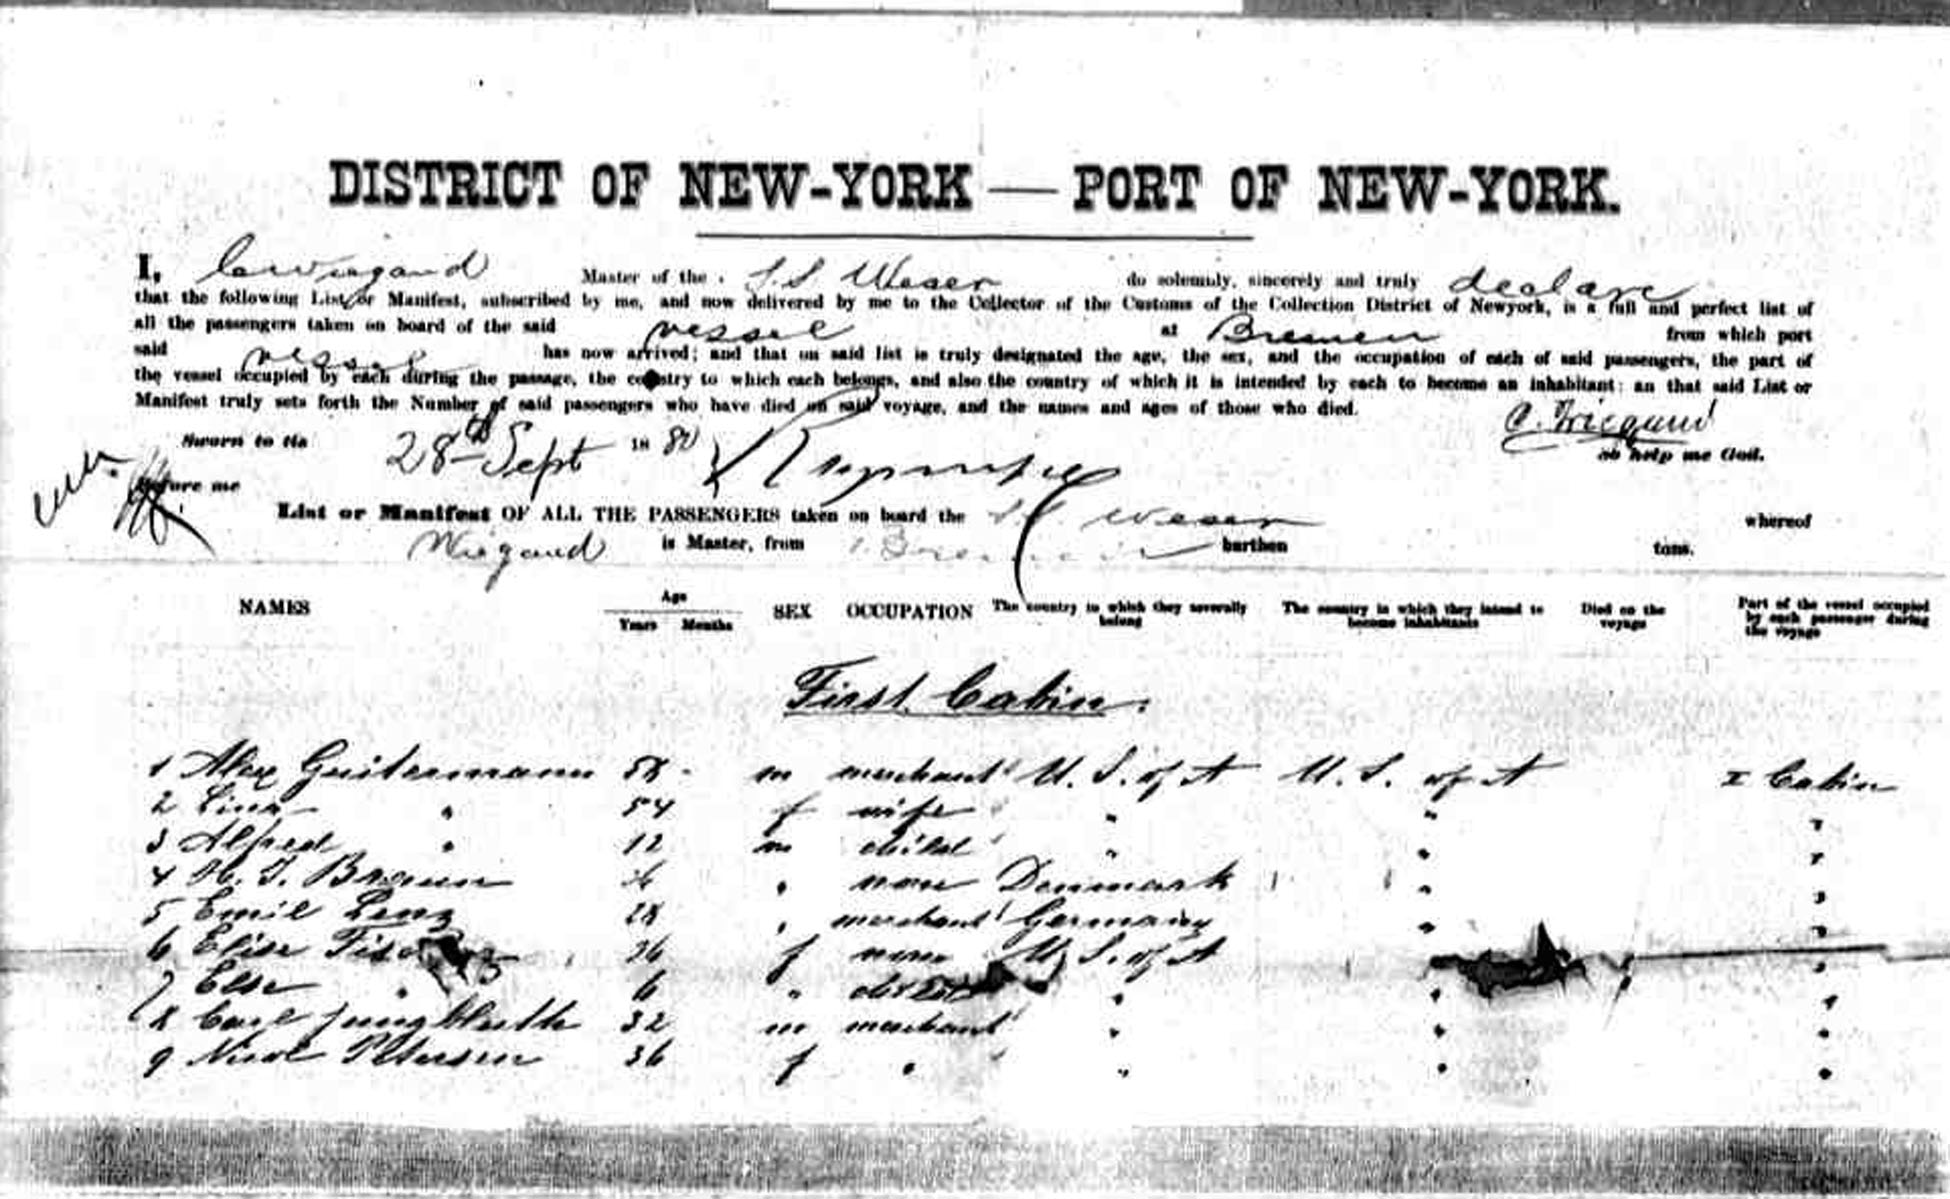 DISTRICT OF NEW-YORK — PORT OF NEW-YORK.
I, C Wiegand Master of the S.S Weser do solemnly, sincerely and truly declare
that the following List or Manifest, subscribed by me, and now delivered by me to the Collector of the Customs of the Collection District of Newyork, is a full and perfect list of
all the passengers taken on board of the said vessel at Bremen from which port
said vessel has now arrived; and that on said list is truly designated the age, the sex, and the occupation of each of said passengers, the part of
the vessel occupied by each during the passage, the country to which each belongs, and also the country of which it is intended by each to become an inhabitant: an that said List or
Manifest truly sets forth the Number of said passengers who have died on said voyage, and the names and ages of those who died.
C. Wiegand
Sworn to tis 28th Sept 1880
so help me God.
Before me
List or Manifest OF ALL THE PASSENGERS taken on board the S.S. Weser whereof
Wiegand is Master, from Bremen burthen tons.
NAMES Age Years Months SEX OCCUPATION The country to which they severally belong The country in which they intend to become inhabitants Died on the voyage Part of the vessel occupied by each passenger during the voyage
First Cabin.
1 Alex Guitermann 58 m merchant U. S. of A U. S. of A I Cabin
2 Lina " 54 f wife " " "
3 Alfred " 12 m child " " "
4 H. J. Braun " none Denmark " "
5 Emil Lenz 28 " merchant Germany " "
6 Elise 26 f none U. S. of A "
7 Else " 6 " child " " "
8 Carl Jungbluth 32 m merchant " " "
9 Petersen 36 f " " " "